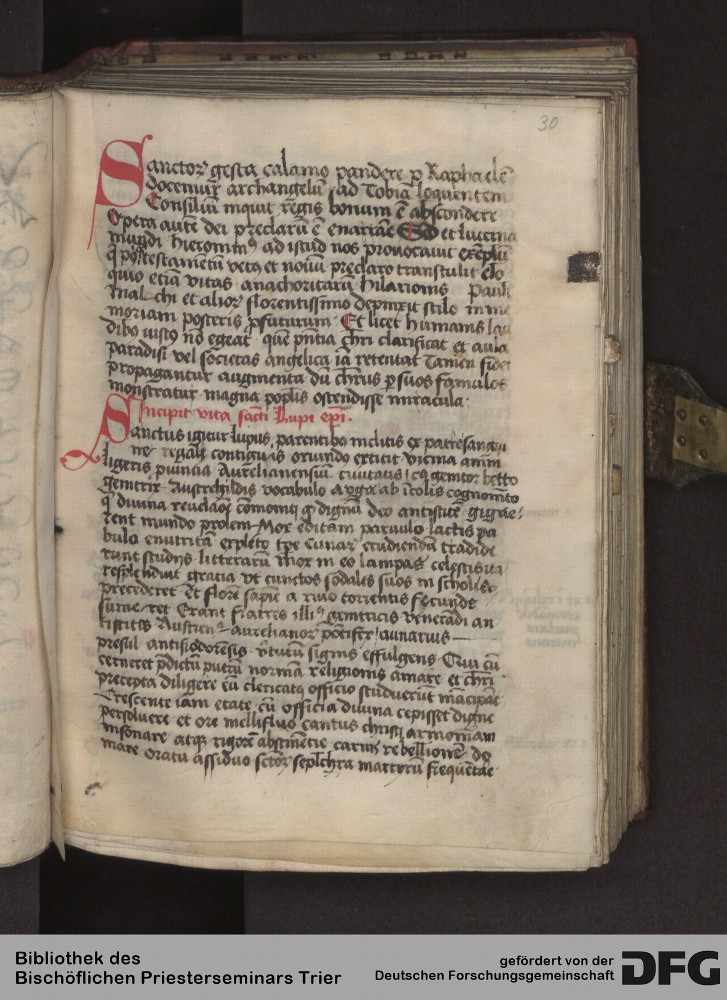 30
Sanctoꝝ gesta calamo pandere ꝑ Raphaelē
docemur archangelū ad Tobiā loquentem
Consiliū inquit regis bonum ē abscondere
Opera autē dei preclarū ē enarrare Sꝫ et lucerna
mundi hieronimꝰ ad istud nos prouocauit exeplū
qͥ postestamentū vetꝰ et nouū preclaro transtulit elo
quio etiā vitas anachoritarū hilarionis Pauli
mal chi et alioꝝ florentissimo depinxit stilo in me
moriam posteris ꝓfuturum Et licet humanis lau
dibꝰ iustꝰ nō egeat quē pn̄tia chri clarificat et aula
paradisi vel societas angelica iā retentat Tamen fidei
propagantur augmenta dū chrus ꝑ suos famulos
monstratur magna popľis ostendisse miracula
Incipit vita sancti Lupi epi.
Sanctus igitur lupus, parentibꝰ inclitis ex patre sangui
ne regali contiguis oriundo extitit vicina amni
ligeris ꝓuincia Aurelianensiū ciuitatis cꝰ genitor betto
genitrix Austregildis vocabulo
qͥ diuina reuelacōe cōmoniti qͦ dignū deo antistitē gigne
rent mundo prolem Mox editam paruulo lactis pa
bulo enutritā expleto tꝑe cunaꝝ erudiendū tradide
runt studijs litterarū mox in eo lampas celestis ita
resplenduit gracia vt cunctos sodales suos in scholis
precederet Et florē sapiē a riuo torrentis fecunde
sumeret Erant fratres illiꝰ genitricis venerādi an
tistites Austrenꝰ aurelianoꝝ pōtifex aunarius
presul antisiodorēsis v̄tutū signis effulgens Qui cū
cerneret p̄dictū puerū normā religionis amare et chri
precepta diligere eū clericatꝰ officio studuerūt mācipare
Crescente iam etate cū officia diuina cepisset digne
persoluere et ore mellifluo cantus christi armoniam
insonare atqꝫ rigore abstinētie carnis rebellionē do
mare oratu assiduo sctoꝝ sepľchra martyrū frequētare
Bibliothek des
Bischöflichen Priesterseminars Trier
gefördert von der
Deutschen Forschungsgemeinschaft
DFG